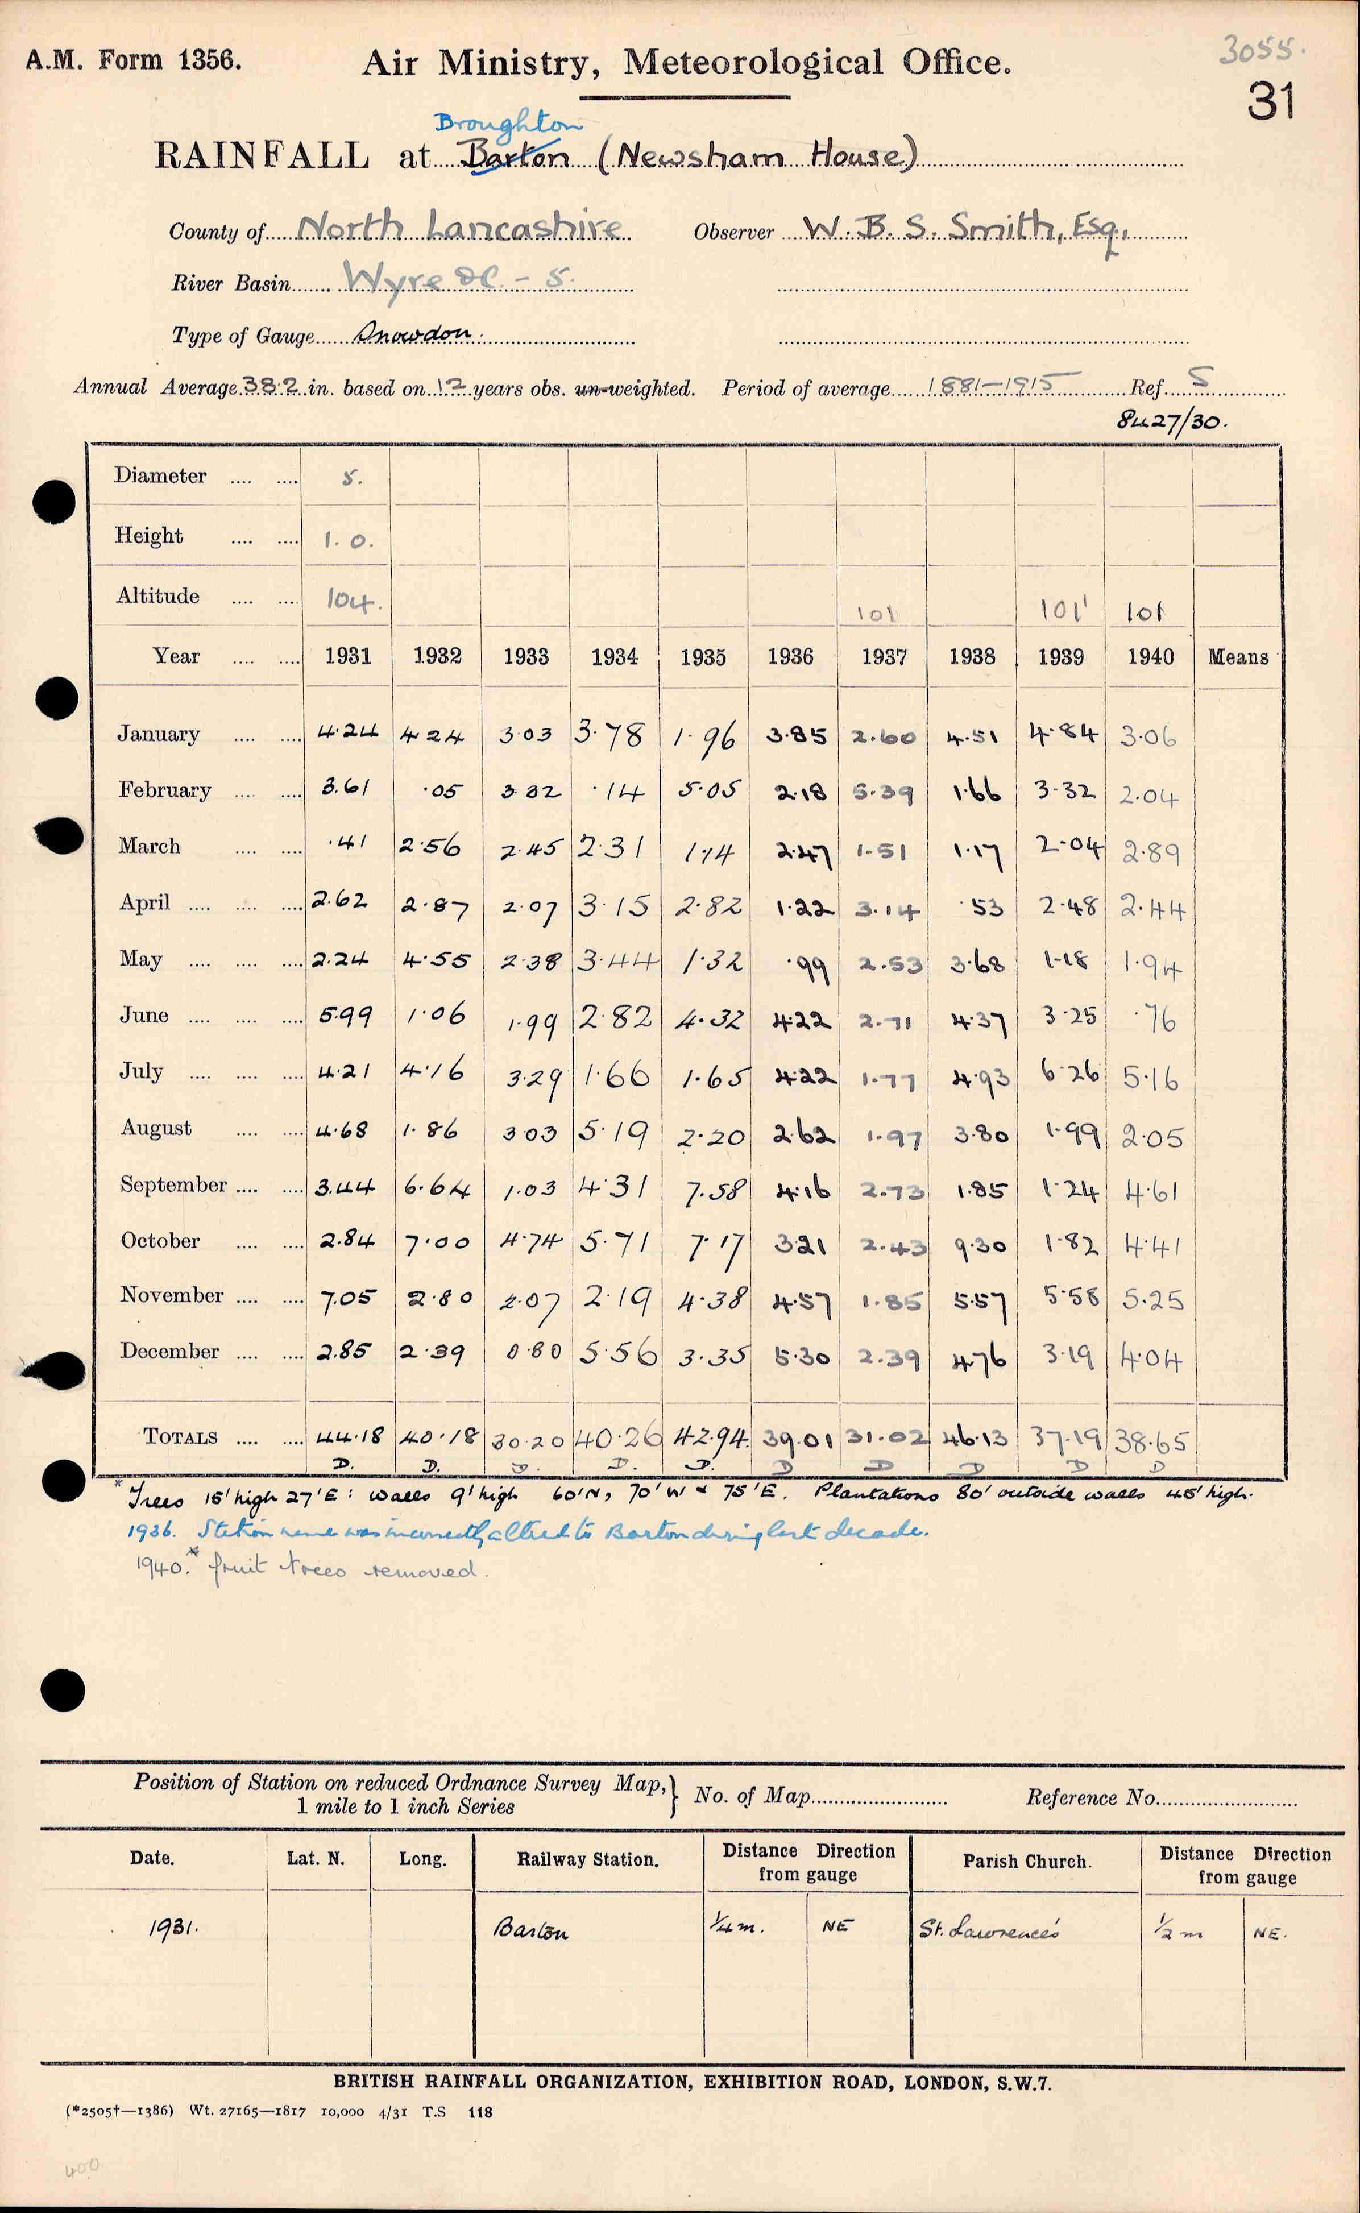 3055.
A.M. Form 1356. Air Ministry, Meteorological Office.
31
Broughton
RAINFALL at Barton (Newsham House)
County of North Lancashire Observer W. B. S. Smith, Esq.,
River Basin Wyre &C. - 5.
Type of Gauge Snowdon.
Annual Average 38·2 in. based on 12 years obs. un-weighted. Period of average 1881-1915 Ref. S
8427/30.
Diameter .... .... 5.
Height .... .... 1. 0.
Altitude .... .... 104. 101 101' 101
Year .... .... 1931 1932 1933 1934 1935 1936 1937 1938 1939 1940 Means
January .... .... 4·24 4 24 3·03 3·78 1·96 3·85 2·60 4·51 4·84 3·06
February .... .... 3.61 ·05 3 32 ·14 5·05 2·18 5·39 1·66 3·32 2·04
March .... .... ·41 2·56 2·45 2·31 1·14 2·47 1·51 1·17 2·04 2·89
April .... .... .... 2.62 2·87 2·07 3·15 2·82 1·22 3·14 ·53 2·48 2·44
May .... .... .... 2.24 4·55 2·38 3·44 1·32 ·99 2·53 3·68 1·18 1·94
June .... .... .... 5·99 1·06 1·99 2·82 4·32 4·22 2·71 4·37 3·25 ·76
July .... .... .... 4·21 4·16 3·29 1·66 1·65 4·22 1·77 4·93 6·26 5·16
August .... .... 4·68 1·86 3 03 5·19 2·20 2·62 1·97 3·80 1·99 2·05
September .... .... 3.44 6·64 1·03 4·31 7·58 4·16 2·73 1·85 1·24 4·61
October .... .... 2.84 7·00 4·74 5·71 7·17 3·21 2·43 9·30 1·82 4·41
November .... .... 7.05 2·80 2·07 2·19 4·38 4·57 1·85 5·57 5·58 5·25
December .... .... 2.85 2·39 0·80 5·56 3·35 5·30 2·39 4·76 3·19 4·04
TOTALS .... .... 44·18 40·18 30·20 40·26 42·94 39·01 31·02 46·13 37·19 38·65
D. D. D. D. D. D D D D D
* Trees 15' high 27'E: walls 9' high 60'N, 70'W & 75'E. Plantations 80' outside walls 45' high.
1936. Station name was incorrectly altered to Barton during last decade.
1940.* fruit trees removed.
Position of Station on reduced Ordnance Survey Map,} No. of Map Reference No.
1 mile to 1 inch Series
Date. Lat. N. Long. Railway Station. Distance Direction from gauge Parish Church. Distance Direction from gauge
1931. Barton ¼ m. NE St. Lawrence's ½ m NE.
BRITISH RAINFALL ORGANIZATION, EXHIBITION ROAD, LONDON, S.W.7.
(*2505†—1386) Wt. 27165—1817 10,000 4/31 T.S 118
400